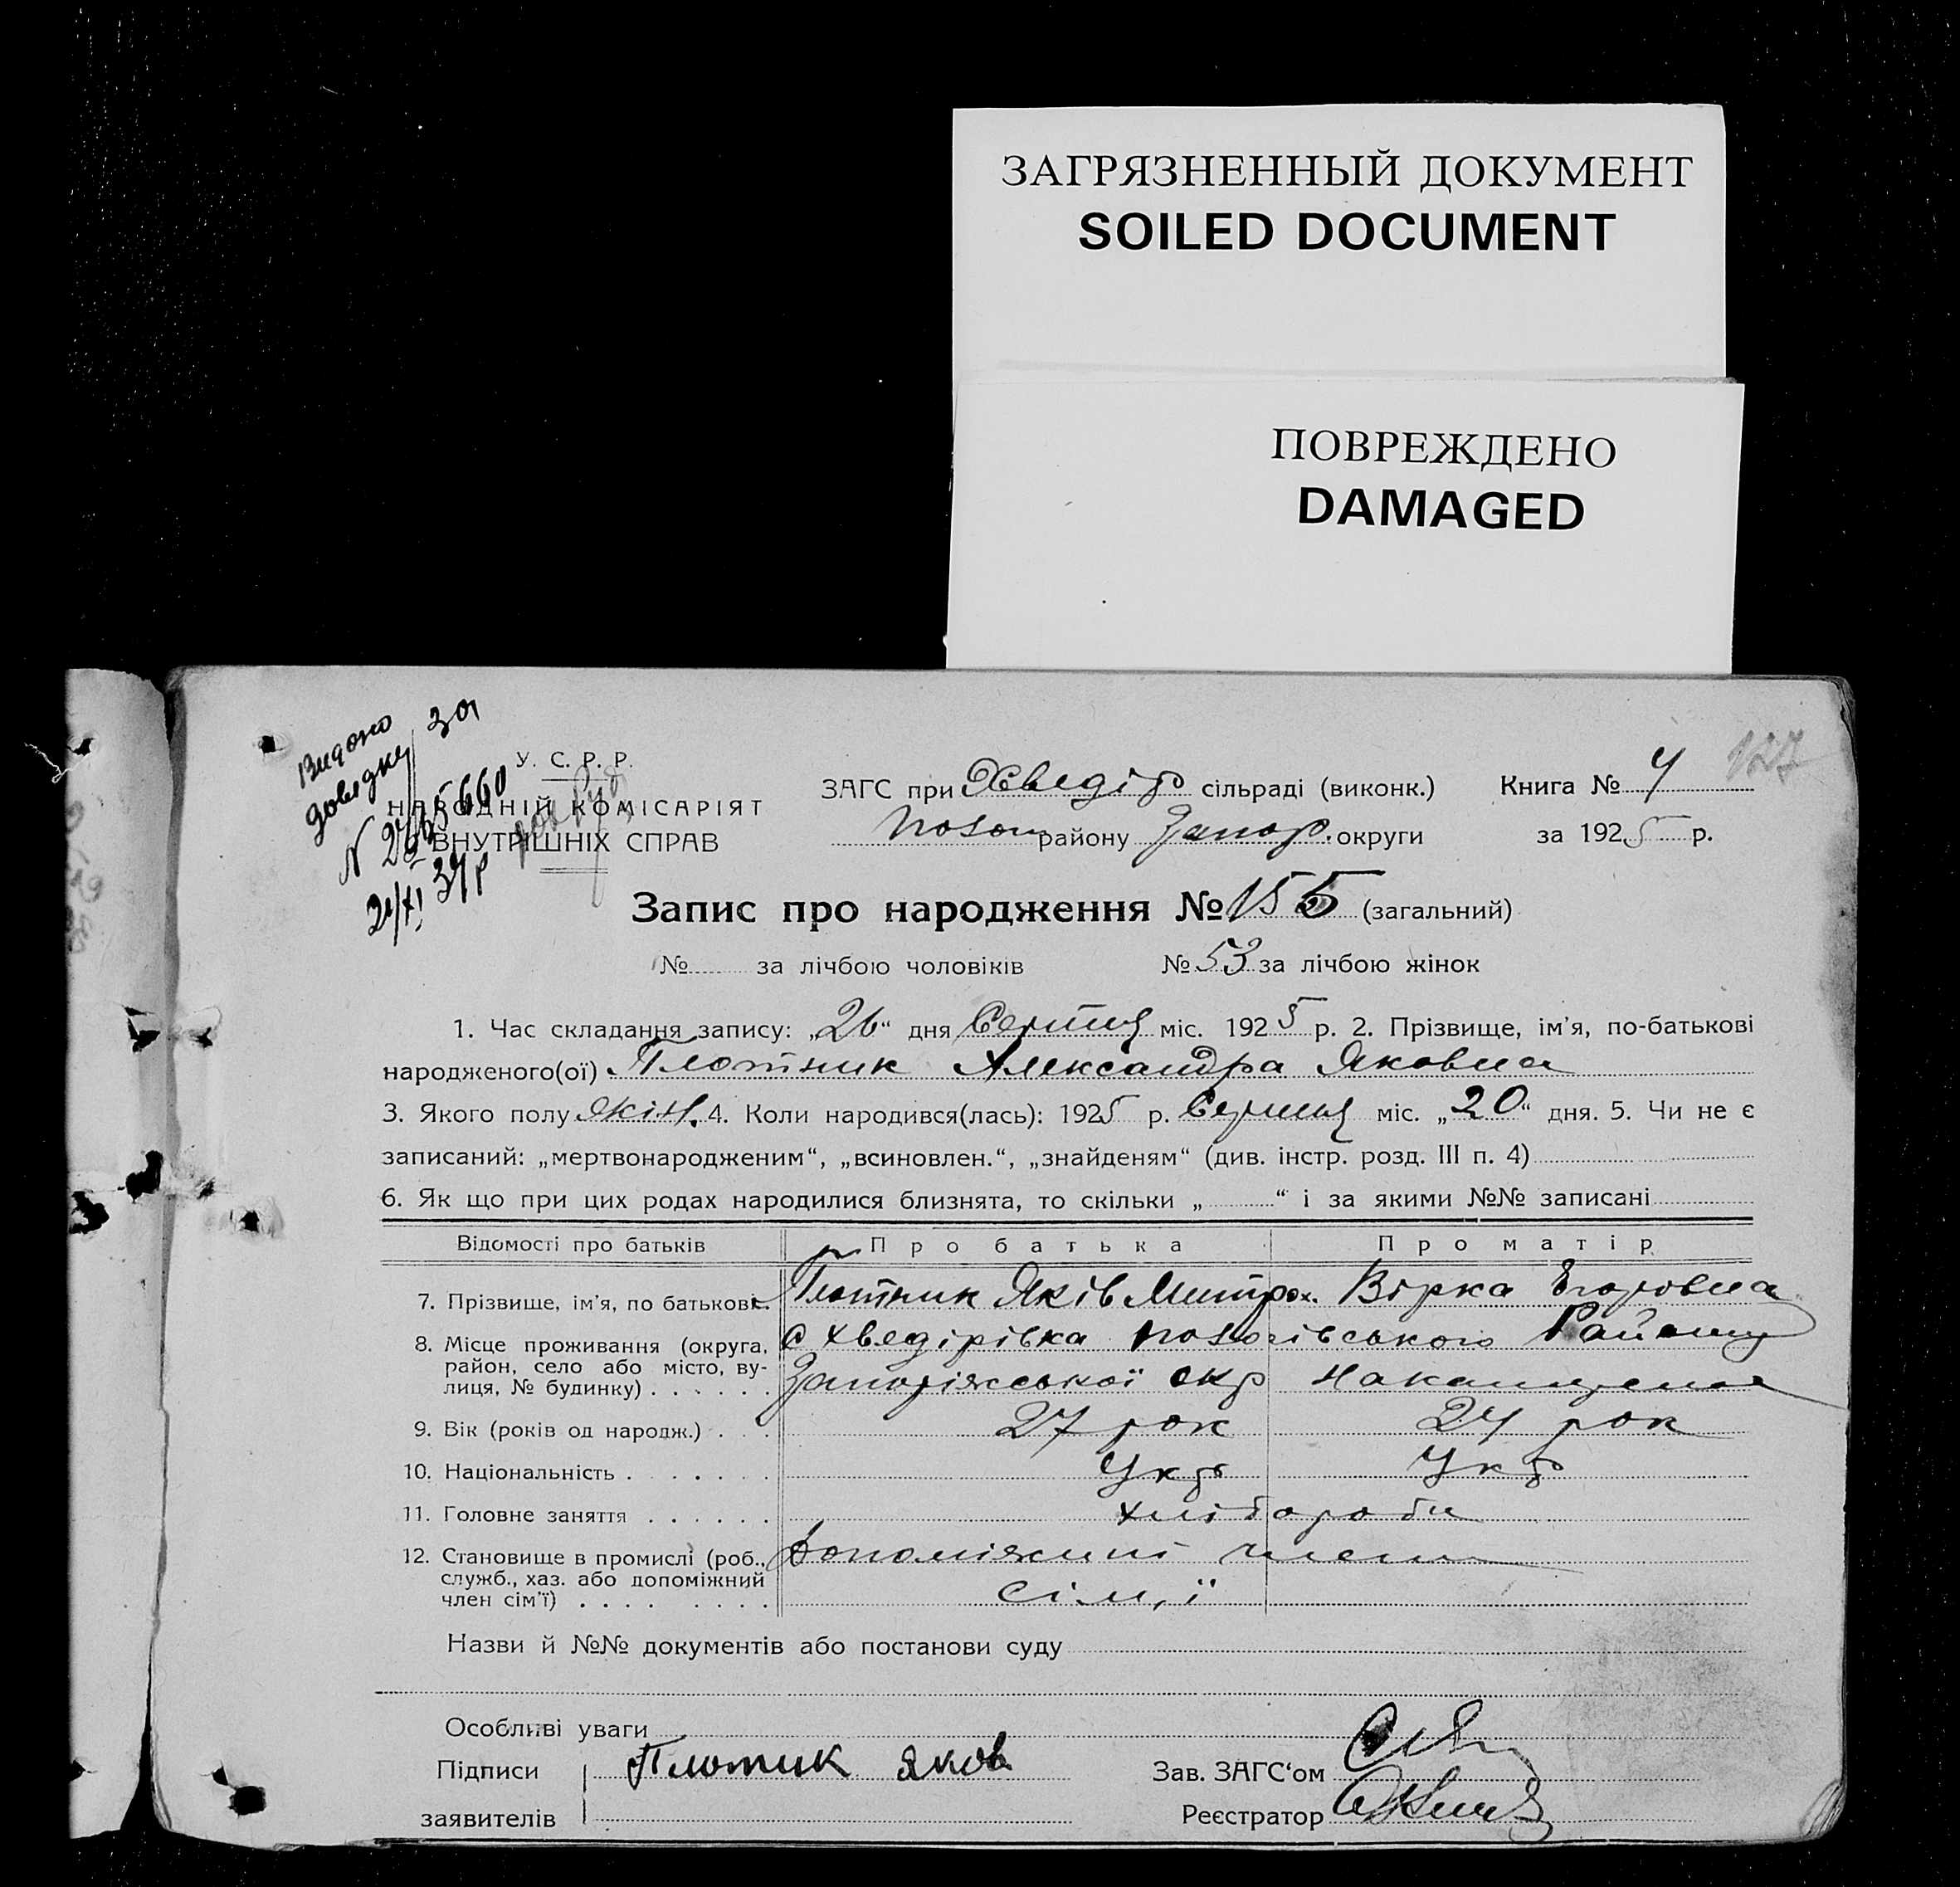 ЗАГРЯЗНЕННЫЙ ДОКУМЕНТ
SOILED DOCUMENT
ПОВРЕЖДЕНО
DAMAGED
Видано
довідку за
N
У. С. Р. Р.
НАРОДНІЙ КОМІСАРІЯТ
ВНУТРІШНІХ СПРАВ
ЗАГС при Хведір сільраді (виконк.)
району Запор. округи
Книга № 4
127
за 1925 р.
Запис про народження № 155 (загальний)
№ за лічбою чоловіків № 53 за лічбою жінок
1. Час складання запису: „26“ дня Серпня міс. 1925 р. 2. Прізвище, ім'я, по-батькові
народженого(ої) Плотник Александра Яковна
3. Якого полу жін. 4. Коли народився(лась): 1925 р. Серпня міс. „20“ дня. 5. Чи не є
записаний: „мертвонародженим“, „всиновлен.“, „знайденям“ (див. інстр. розд. III п. 4)
6. Як що при цих родах народилися близнята, то скільки „ “ і за якими №№ записані
Відомості про батьків Про батька Про матір
7. Прізвище, ім'я, по батькові. Плотник Яків Митрох. Вірка Егоровна
8. Місце проживання (округа, район, село або місто, вулиця, № будинку) с Хведірівка Району
Запоріжської окр
9. Вік (років од народж.) 27 рок 24 рок
10. Національність Укр Укр
11. Головне заняття хлібороби
12. Становище в промислі (роб., служб., хаз. або допоміжний член сім'ї) допоміжний член
сім,ї
Назви й №№ документів або постанови суду
Особливі уваги
Підписи заявителів Плотник Яков
Зав. ЗАГС'ом
Реєстратор